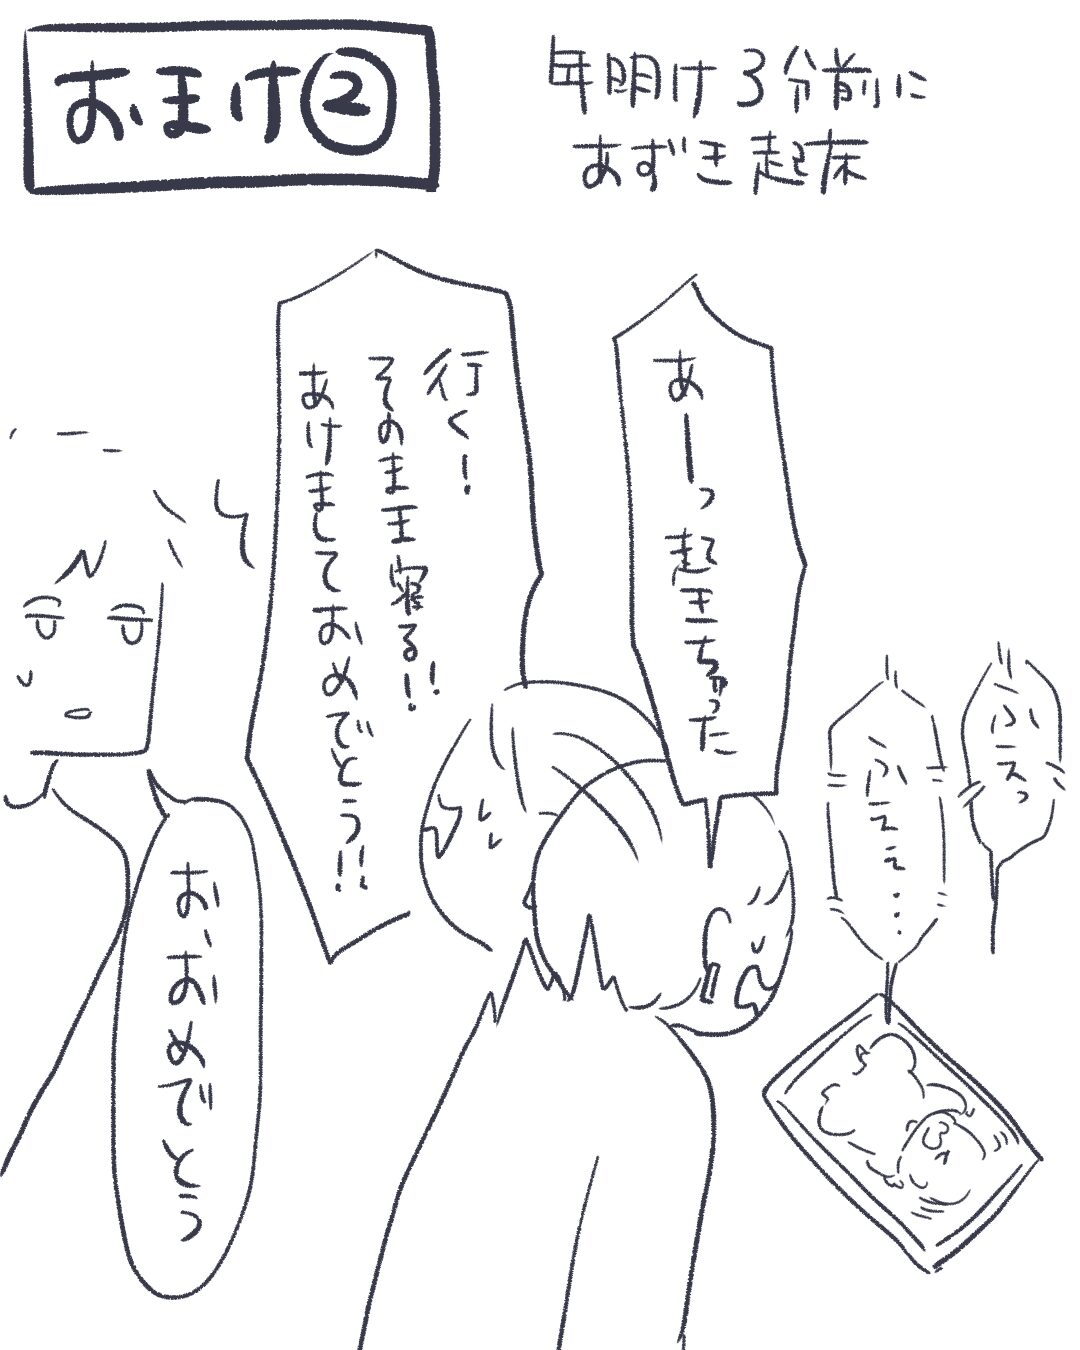 おまけ②
年明け3分前に
あずき起床
ふえっ
ふええ…
あーっ起きちゃった
行く!
そのまま寝る!!
あけましておめでとう!!
お、おめでとう